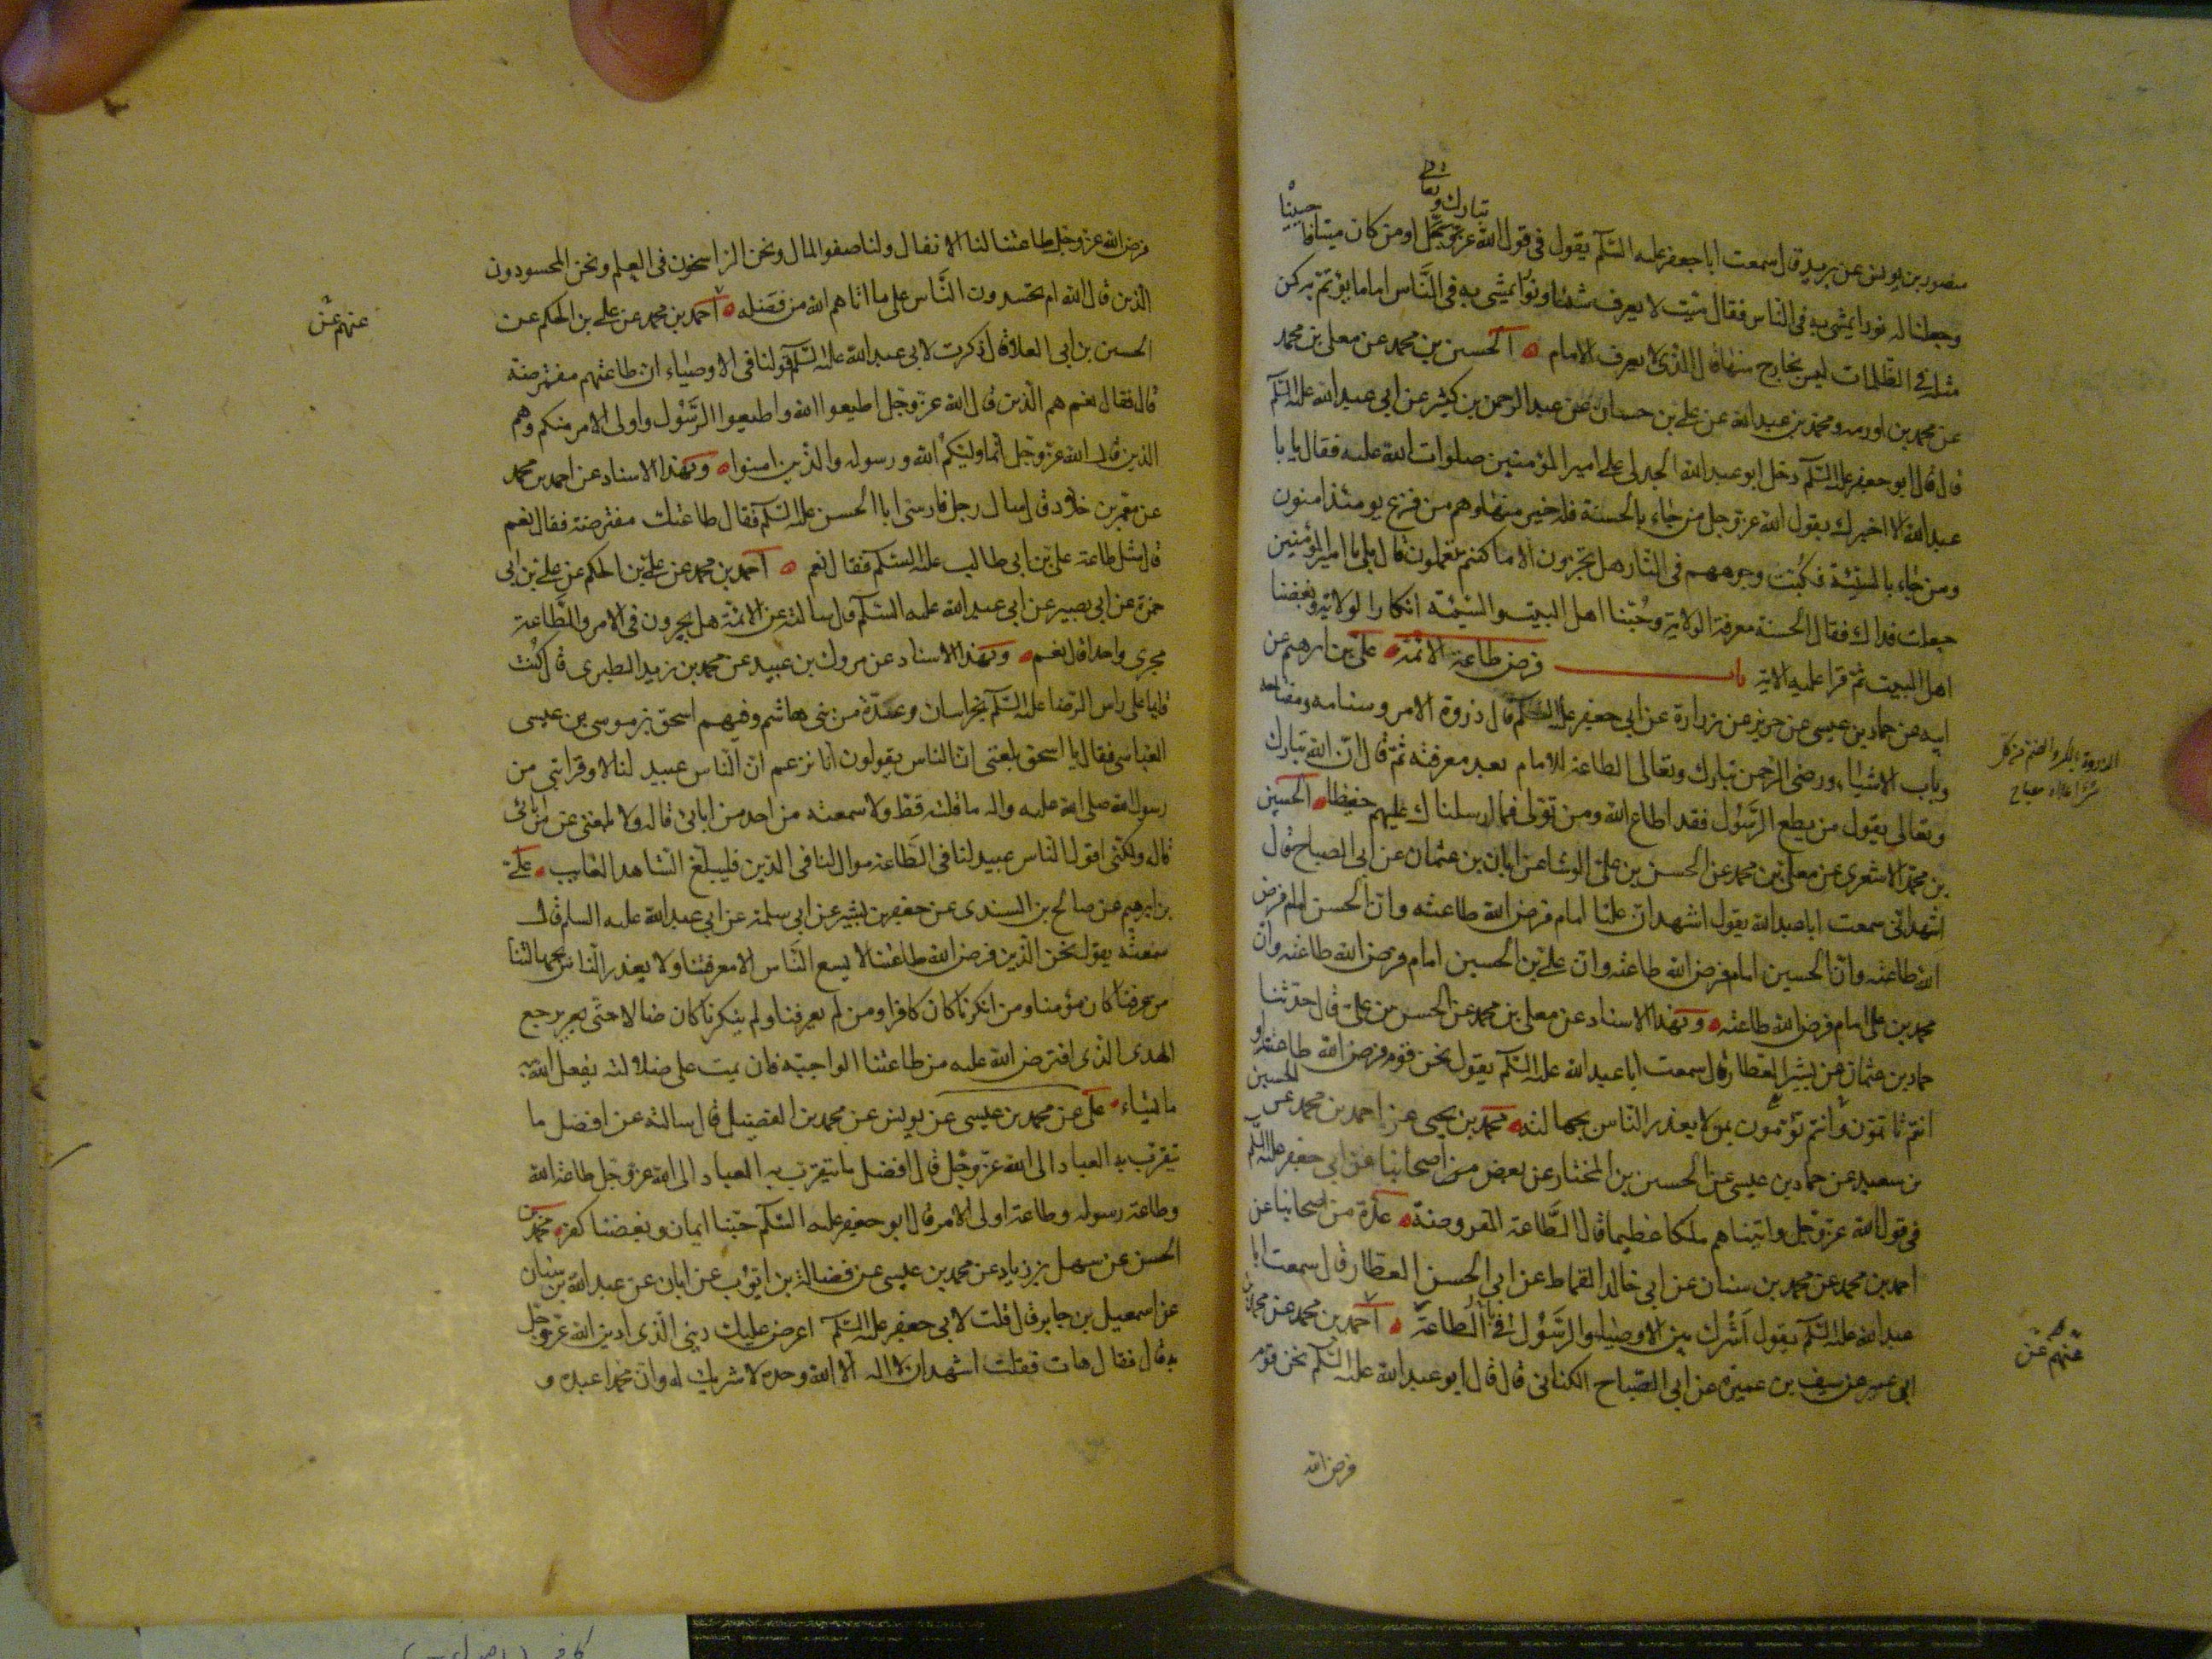 تبارك وتعالى
منصور بن يونس عن بريد قال سمعت ابا جعفر عليه السلم يقول فى قول الله عز وجل اومن كان ميتا فاحييناه
وجعلنا له نورا يمشى به فى الناس فقال ميت لا يعرف شيئا ونورا يمشى به فى الناس اماما يؤتم به كمن
مثله فى الظلمات ليس بخارج منها قال الذى لا يعرف الامام الحسين بن محمد عن معلى بن محمد
عن محمد بن اورمه ومحمد بن عبدالله عن على بن حسان عن عبد الرحمن بن كثير عن ابى عبدالله عليه السلم
قال قال ابو جعفر عليه السلم دخل ابو عبدالله الجدلى على امير المؤمنين صلوات الله عليه فقال يا با
عبدالله الا اخبرك بقول الله عز وجل من جاء بالحسنة فله خير منها وهم من فزع يومئذ امنون
ومن جاء بالسيئة فكبت وجوههم فى النار هل تجزون الا ما كنتم تعملون قال بلى يا امير المؤمنين
جعلت فداك فقال الحسنة معرفة الولاية وحبنا اهل البيت والسيئة انكار الولاية وبغضنا
اهل البيت ثم قرا عليه الاية باب فرض طاعة الائمة على بن ابرهيم عن
ابيه عن حماد بن عيسى عن حريز عن زرارة عن ابى جعفر عليه السلم قال ذروة الامر وسنامه ومفتاحه
وباب الاشياء ورضى الرحمن تبارك وتعالى الطاعة للامام بعد معرفته ثم قال ان الله تبارك
وتعالى يقول من يطع الرسول فقد اطاع الله ومن تولى فما ارسلناك عليهم حفيظا الحسين
بن محمد الاشعرى عن معلى بن محمد عن الحسن بن على الوشا عن ابان بن عثمان عن ابى الصباح قال
اشهد انى سمعت ابا عبدالله يقول اشهد ان عليا امام فرض الله طاعته وان الحسن امام فرض
الله طاعته وان الحسين امام فرض الله طاعته وان على بن الحسين امام فرض الله طاعته وان
محمد بن على امام فرض الله طاعته وبهذا الاسناد عن معلى بن محمد عن الحسن بن على قال حدثنا
حماد بن عثمان عن بشير العطار قال سمعت ابا عبدالله عليه السلم يقول نحن قوم فرض الله طاعتنا و
انتم تاتمون وانتم تؤتمون بمن لا يعذر الناس بجهالته محمد بن يحيى عن احمد بن محمد عن الحسين
بن سعيد عن حماد بن عيسى عن الحسين بن المختار عن بعض من اصحابنا عن ابى جعفر عليه السلم
فى قول الله عز وجل واتيناهم ملكا عظيما قال الطاعة المفروضة عدة من اصحابنا عن
احمد بن محمد عن محمد بن سنان عن ابى خالد القماط عن ابى الحسن العطار قال سمعت ابا
عبدالله عليه السلم يقول اشرك بين الاوصياء والرسول فى الطاعة احمد بن محمد عن محمد بن
ابى عمير عن سيف بن عميرة عن ابى الصباح الكنانى قال قال ابو عبدالله عليه السلم نحن قوم
فرض الله
عنهم عن
فرض الله عز وجل طاعتنا لنا الانفال ولنا صفو المال ونحن الراسخون فى العلم ونحن المحسودون
الذين قال الله ام يحسدون الناس على ما اتاهم الله من فضله احمد بن محمد عن على بن الحكم عن
الحسين بن ابى العلا قال ذكرت لابى عبدالله عليه السلم قولنا فى الاوصياء ان طاعتهم مفترضة
قال فقال نعم هم الذين قال الله عز وجل اطيعوا الله واطيعوا الرسول واولى الامر منكم وهم
الذين قال الله عز وجل انما وليكم الله ورسوله والذين امنوا وبهذا الاسناد عن احمد بن محمد
عن معمر بن خلاد قال سال رجل فارسى ابا الحسن عليه السلم فقال طاعتك مفترضة فقال نعم
قال مثل طاعة على بن ابى طالب عليه السلم فقال نعم احمد بن محمد عن على بن الحكم عن على بن ابى
حمزة عن ابى بصير عن ابى عبدالله عليه السلم قال سالته عن الائمة هل يجرون فى الامر والطاعة
مجرى واحد قال نعم وبهذا الاسناد عن مروك بن عبيد عن محمد بن زيد الطبرى قال كنت
قايما على راس الرضا عليه السلم بخراسان وعدة من بنى هاشم وفيهم اسحق بن موسى بن عيسى
العباسى فقال يا اسحق بلغنى ان الناس يقولون انا نزعم ان الناس عبيد لنا لا وقرابتى من
رسول الله صلى الله عليه واله ما قلته قط ولا سمعته من احد من ابائى قاله ولا بلغنى عن من ابائى
قاله ولكنى اقول الناس عبيد لنا فى الطاعة موال لنا فى الدين فليبلغ الشاهد الغايب على
بن ابرهيم عن صالح بن السندى عن جعفر بن بشير عن ابى سلمة عن ابى عبدالله عليه السلم قال
سمعته يقول نحن الذين فرض الله طاعتنا لا يسع الناس الا معرفتنا ولا يعذر الناس بجهالتنا
من عرفنا كان مؤمنا ومن انكرنا كان كافرا ومن لم يعرفنا ولم ينكرنا كان ضالا حتى يرجع
الهدى الذى افترض الله عليه من طاعتنا الواجبة فان يمت على ضلالته يفعل الله به
ما يشاء على عن محمد بن عيسى عن يونس عن محمد بن الفضيل قال سالته عن افضل ما
يتقرب به العباد الى الله عز وجل قال افضل ما يتقرب به العباد الى الله عز وجل طاعة الله
وطاعة رسوله وطاعة اولى الامر قال ابو جعفر عليه السلم حبنا ايمان وبغضنا كفر محمد بن
الحسن عن سهل بن زياد عن محمد بن عيسى عن فضالة بن ايوب عن ابان عن عبدالله بن سنان
عن اسمعيل بن جابر قال قلت لابى جعفر عليه السلم اعرض عليك دينى الذى ادين الله عز وجل
به قال فقال هات فقلت اشهد ان لا اله الا الله وحده لا شريك له وان محمدا عبده و
عنهم عن